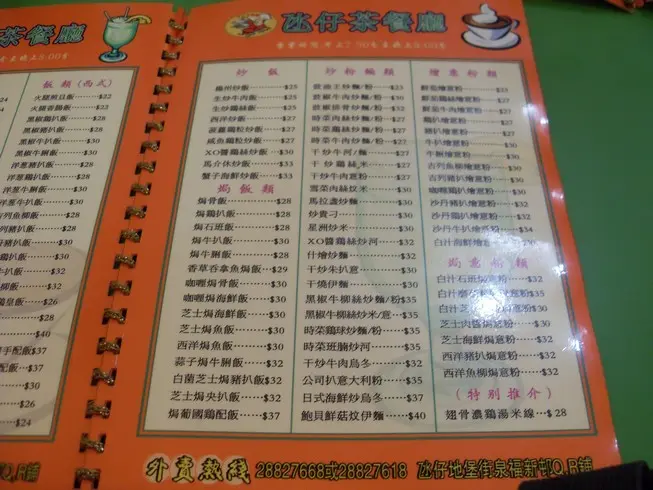 茶餐廳
飯類(西式)
火腿煎旦飯……$22
火腿香腸飯……$22
黑椒鷄扒飯……$28
黑椒豬扒飯……$28
黑椒牛扒飯……$30
黑椒牛脷飯……$30
洋葱豬扒飯……$28
洋葱鷄扒飯……$28
洋葱牛扒飯……$30
洋葱牛脷飯……$30
吉列魚柳飯……$30
氹仔茶餐廳
炒飯
揚州炒飯……$25
生炒牛肉飯……$25
生炒鷄絲飯……$25
西洋炒飯……$27
菠蘿鷄粒炒飯……$27
咸魚鷄粒炒飯……$27
XO醬鷄絲炒飯……$30
馬介休炒飯……$33
蟹子海鮮炒飯……$33
焗飯類
焗骨飯……$28
焗鷄扒飯……$28
焗石班飯……$28
焗牛扒飯……$30
焗牛脷飯……$30
香草吞拿魚焗飯……$29
咖喱焗骨飯……$30
咖喱焗海鮮飯……$30
芝士焗海鮮飯……$30
芝士焗魚飯……$30
西洋焗魚飯……$30
蒜子焗牛脷飯……$32
白菌芝士焗豬扒飯$32
芝士焗央扒飯……$30
焗葡國鷄配飯……$37
炒粉麵類
豉油王炒麵/粉……$23
豉椒牛肉炒麵/粉……$30
豉椒排骨炒麵/粉……$32
時菜肉絲炒麵/粉……$27
時菜鷄絲炒麵/粉……$27
時菜牛肉炒麵/粉……$27
干炒牛河/麵……$27
干炒鷄絲米……$27
干炒牛肉意粉……$27
雪菜肉絲炆米……$30
馬拉盞炒麵……$30
炒貴刁……$30
星洲炒米……$30
XO醬鷄絲炒河……$32
什燴炒麵……$32
干炒朱扒意……$30
干燒伊麵……$30
黑椒牛柳絲炒麵/粉$35
黑椒牛柳絲炒米/意……$35
時菜鷄球炒麵/粉……$35
時菜班腩炒河……$35
干炒牛肉烏冬……$32
公司扒意大利粉……$35
日式海鮮炒烏冬……$37
鮑貝鮮菇炆伊麵……$40
燴意粉類
鮮茄燴意粉……$23
鮮茄鷄絲燴意粉……$27
鮮茄牛肉燴意粉……$27
鷄扒燴意粉……$27
豬扒燴意粉……$27
牛扒燴意粉……$30
牛脷燴意粉……$30
吉列魚柳燴意粉……$30
咖喱鷄燴意粉……$30
沙丹豬扒燴意粉……$32
沙丹鷄扒燴意粉……$32
沙丹牛扒燴意粉……$34
白汁海鮮燴意粉……$30
焗意粉類
白汁石班焗意粉……$32
芝士肉醬焗意粉……$30
芝士海鮮焗意粉……$32
西洋豬扒焗意粉……$32
西洋魚柳焗意粉……$32
(特別推介)
翅骨濃鷄湯米線……$28
外賣熱線 28827668或28827618 氹仔地堡街泉福新邨Q,R鋪